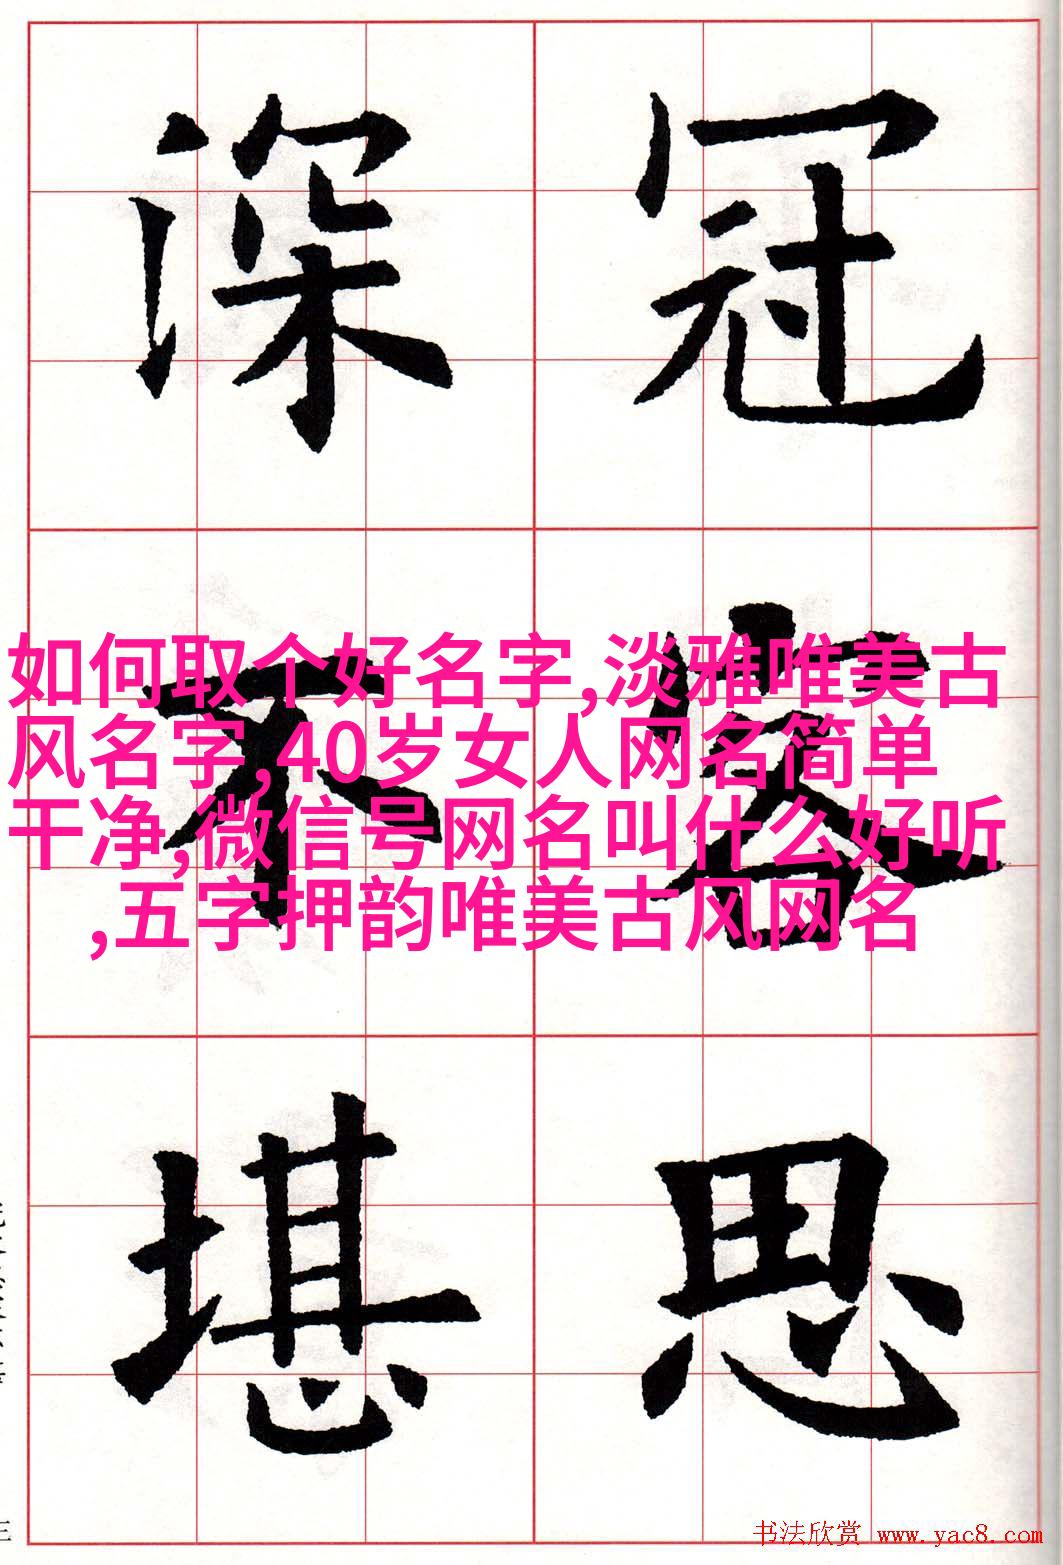 深冠
不容
堪思
如何取个好名字,淡雅唯美古
风名字,40岁女人网名简单
干净,微信号网名叫什么好听
,五字押韵唯美古风网名
书法欣赏 www.yac8.com